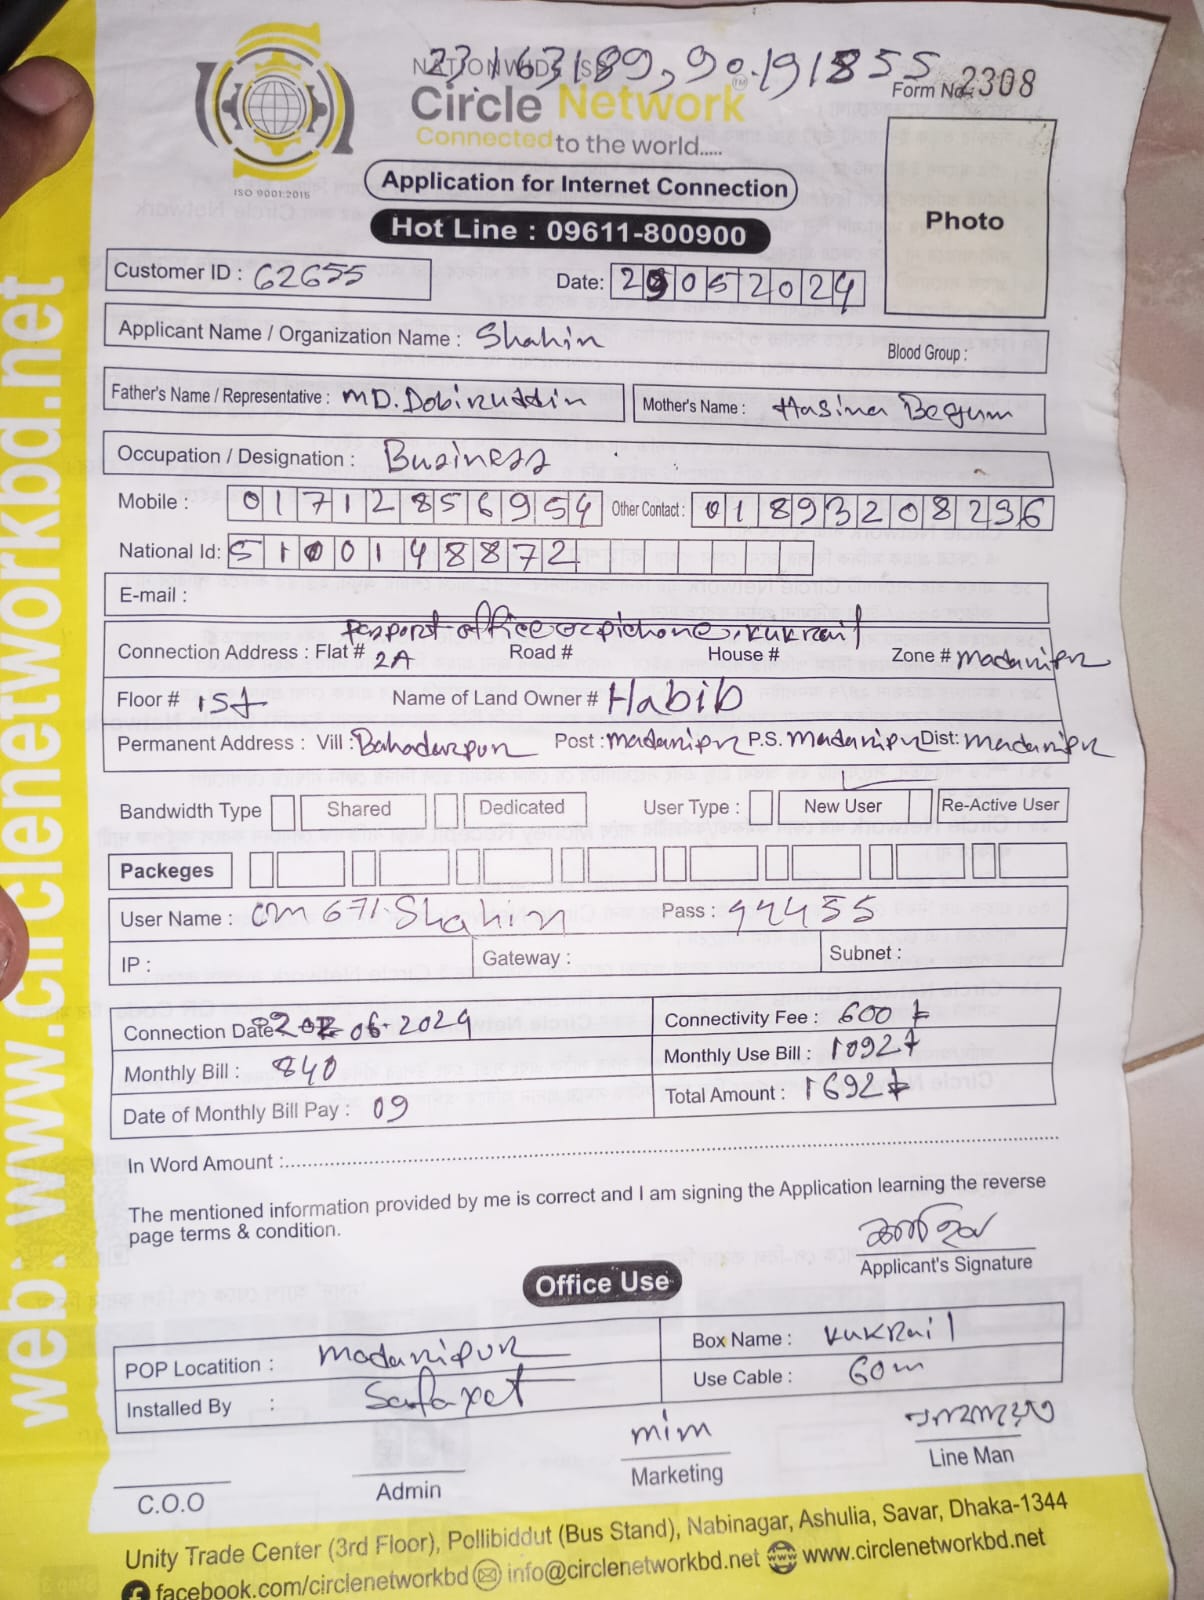 23163189, 90.191855
NATIONWIDE ISP
Form No: 2308
Circle Network
Connected to the world.....
ISO 9001:2015
Application for Internet Connection
Photo
Hot Line : 09611-800900
Customer ID : 62655
Date: 29052024
Applicant Name / Organization Name : Shahin
Blood Group :
Father's Name / Representative : MD. Dobiruddin Mother's Name : Hasina Begum
Occupation / Designation : Business
Mobile : 01712856954 Other Contact : 01893208296
National Id: 5100148872
E-mail :
pasport office ar pichone, kukrail
Connection Address : Flat # 2A Road # House # Zone # madaripur
Floor # 1st Name of Land Owner # Habib
Permanent Address : Vill : Bahadurpur Post : madaripur P.S. madaripur Dist: madaripur
Bandwidth Type Shared Dedicated User Type : New User Re-Active User
Packeges
User Name : cm671.Shahin Pass : 44455
IP : Gateway : Subnet :
Connection Date 02-06-2024 Connectivity Fee : 600
Monthly Bill : 840 Monthly Use Bill : 1092
Date of Monthly Bill Pay : 09 Total Amount : 1692
In Word Amount :
The mentioned information provided by me is correct and I am signing the Application learning the reverse
page terms & condition.
Applicant's Signature
Office Use
POP Locatition : madaripur Box Name : kukrail
Installed By : Safayet Use Cable : 60m
mim
C.O.O Admin Marketing Line Man
Unity Trade Center (3rd Floor), Pollibiddut (Bus Stand), Nabinagar, Ashulia, Savar, Dhaka-1344
facebook.com/circlenetworkbd info@circlenetworkbd.net www.circlenetworkbd.net
web: www.circlenetworkbd.net